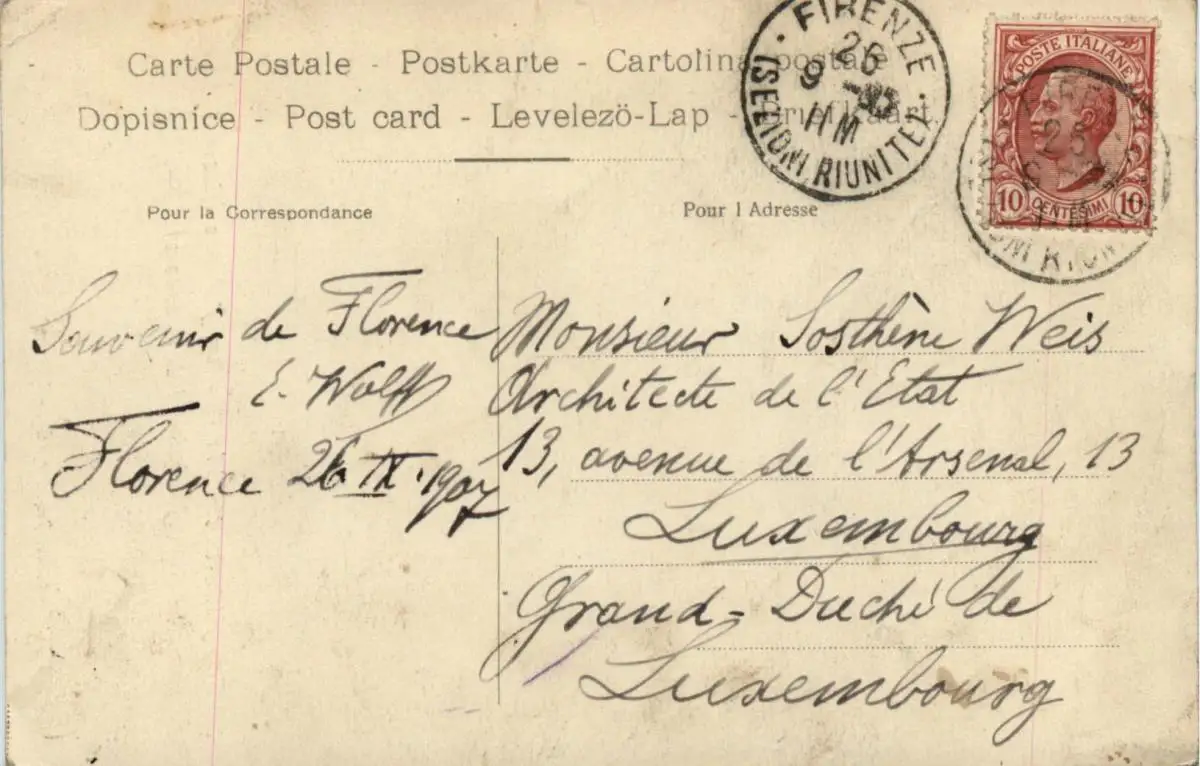 Carte Postale - Postkarte - Cartolina postale
Dopisnice - Post card - Levelezö-Lap -
Pour la Correspondance
Pour l Adresse
FIRENZE
26
9 -
11 M
(SEZIONI RIUNITE)
POSTE ITALIANE
10 CENTESIMI 10
Souvenir de Florence
E. Wolff
Florence 26 IX. 1907
Monsieur Sosthène Weis
Architecte de l'Etat
13, avenue de l'Arsenal, 13
Luxembourg
Grand-Duché de
Luxembourg